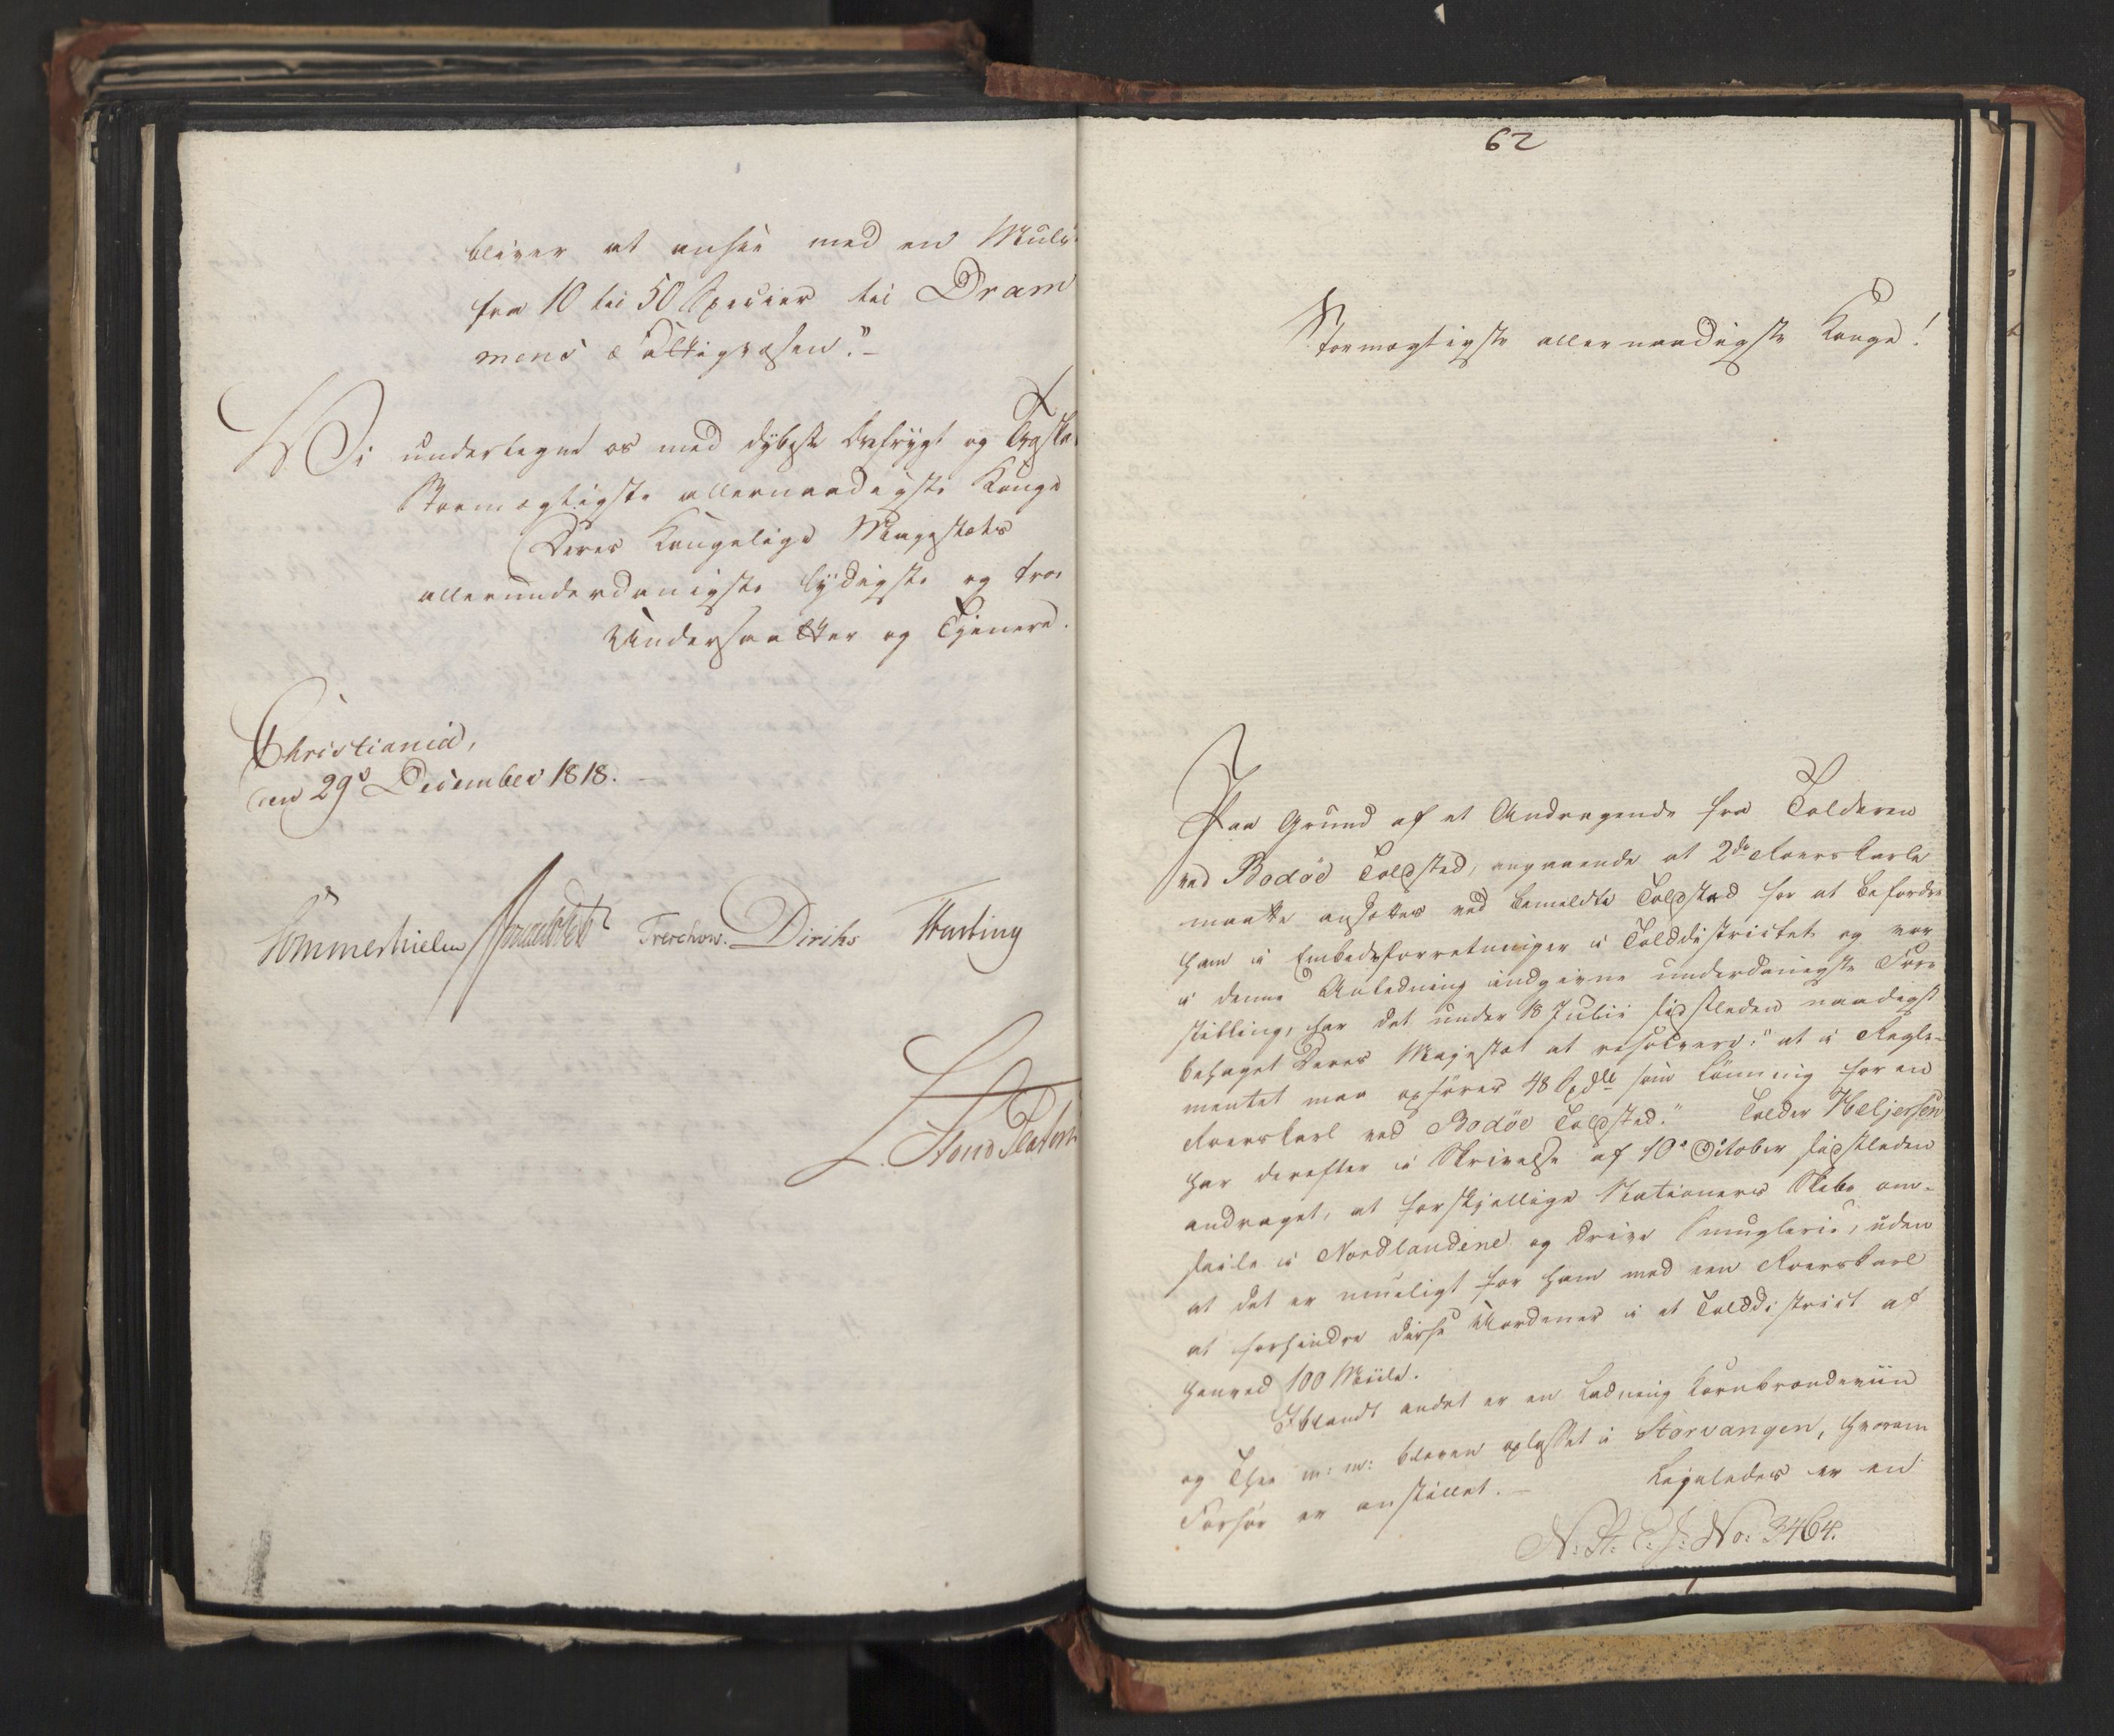 bliver at ansee med en Mulct
fra 10 til 50 Specier til Dram
mens Fattigvæsen."-
Vi undertegne os med dybeste Ærefrygt og Troskab
Stormægtigste allernaadigste Konge
Deres Kongelige Majestæts
allerunderdanigste lydigste og troe
Undersaatter og Tjenere.
Christiania,
den 29de December 1818.-
Sommerhielm Treschow. Diriks Harting
62
Stormægtigste allernaadigste Konge!
Paa Grund af et Andragende fra Tolderen
ved Bodøe Toldsted, angaaende at 2de Roerskarle
maatte ansættes ved bemeldte Toldsted for at befordre
ham i Embedsforretninger i Tolddistrictet og vor
i denne Anledning indgivne underdanigste Fore
stilling, har det under 18 Julii sidstleden naadigst
behaget Deres Majestæt at resolvere: "at i Regle-
mentet maa opføres 48 Spdlr som Lønning for en
Roerskarl ved Bodøe Toldsted." Tolder Heljersen
har derefter i Skrivelse af 10de October sidstleden
andraget, at forskjellige Nationers Skibe om-
seile i Nordlandene og drive Smuglerie, uden
at det er mueligt for ham med een Roerskarl
at forhindre disse Uordener i et Tolddistrict af
henved 100 Miile.
Iblandt andet er en Ladning Kornbrændeviin
og Thee m: m: bleven oplosset i Storvaagen, hvorom
Forhør er anstillet.- Ligeledes er en
N: St: C: J: No: 3464.